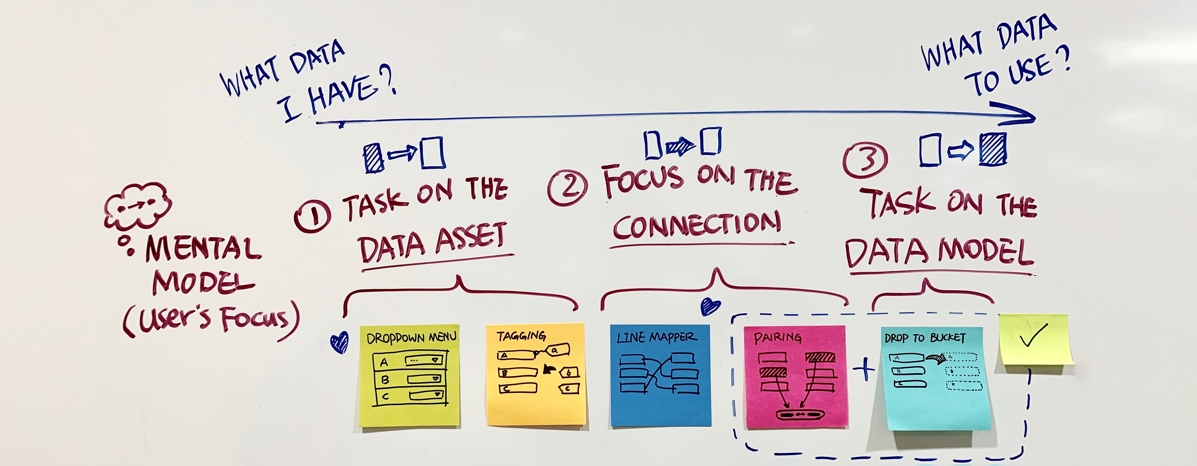 WHAT DATA
I HAVE?
WHAT DATA
TO USE?
MENTAL
MODEL
(User's Focus)
1 TASK ON THE
DATA ASSET
2 FOCUS ON THE
CONNECTION
3
TASK ON THE
DATA MODEL
DROPDOWN MENU
A ...
B
C
TAGGING
A a
B b
C c
LINE MAPPER
PAIRING
+
DROP TO BUCKET
A
B
C